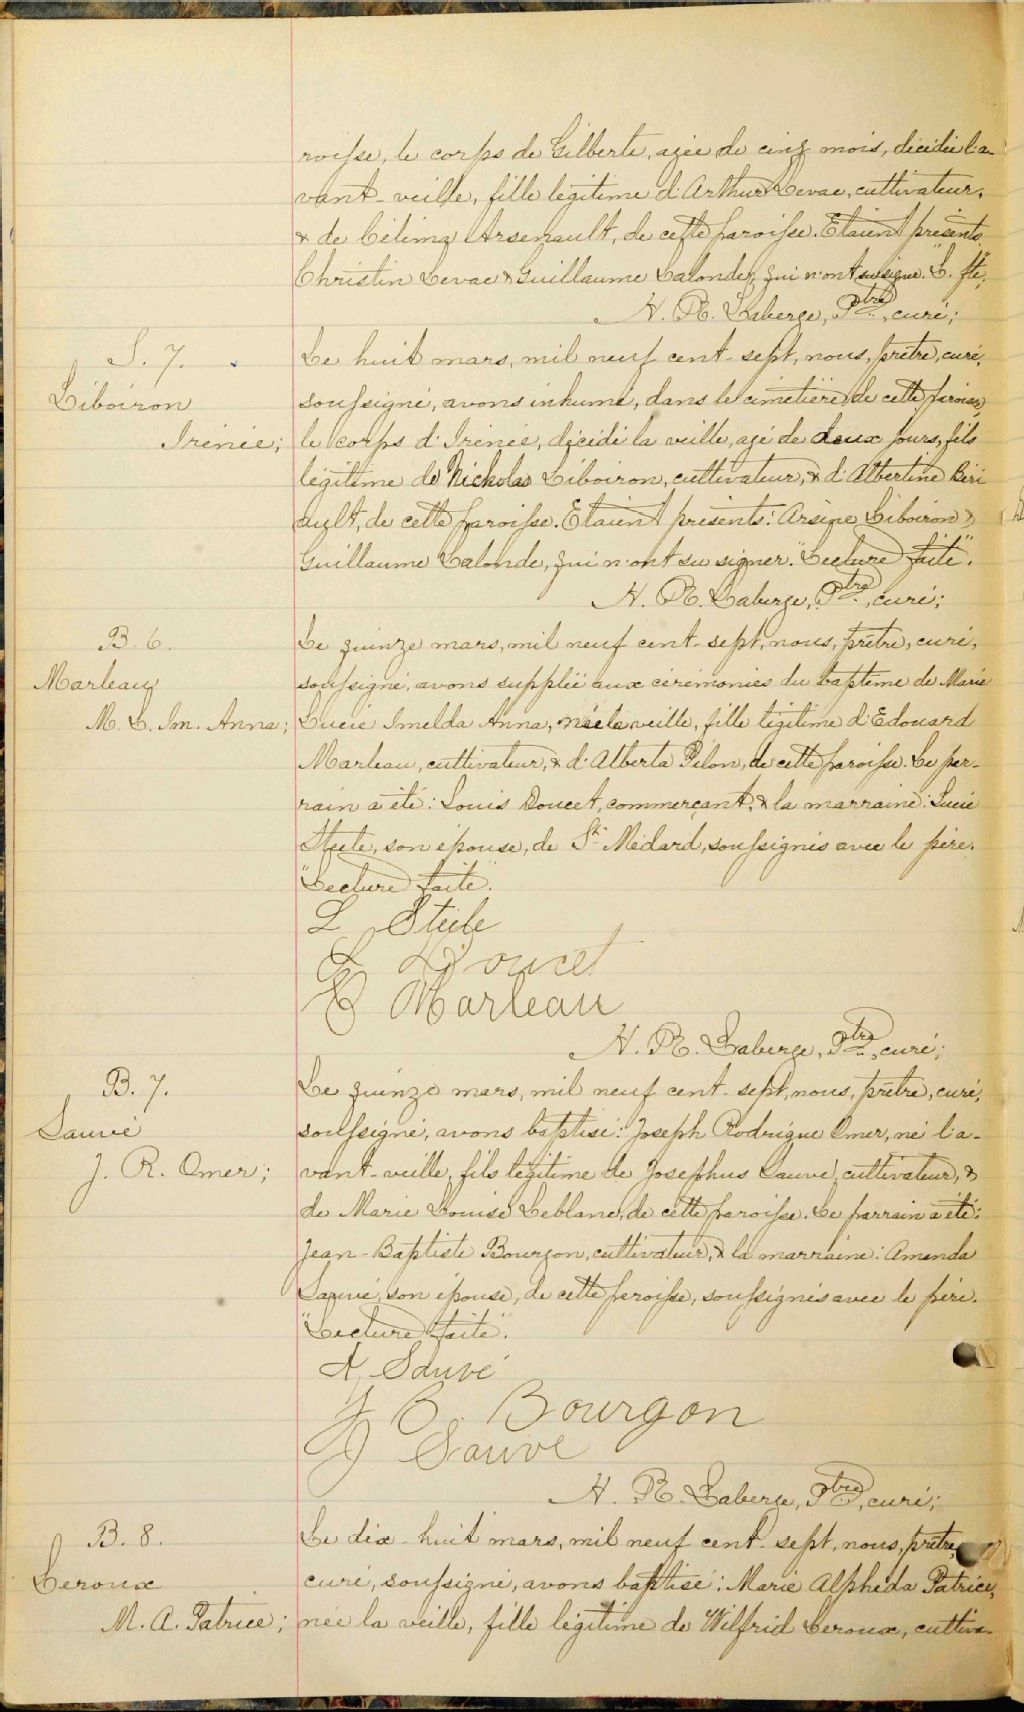 roisse, le corps de Gilberte, agée de cinq mois, décédée l'a-
vant-veille, fille légitime d'Arthur Levac, cultivateur,
& de Célima Arsenault, de cette paroisse. Etaient présents
Christin Levac & Guillaume Lalonde, qui n'ont su signer. "L. fte,"
H. R. Laberge, Ptre, curé;
S. 7.
Liboiron
Irénée;
Le huit mars, mil neuf cent-sept, nous, prêtre, curé,
soussigné, avons inhumé, dans le cimetière de cette paroisse,
le corps d'Irénée, décédé la veille, agé de deux jours, fils
légitime de Nickolas Liboiron, cultivateur, & d'Albertine Béri
ault, de cette paroisse. Etaient présents: Arsène Liboiron &
Guillaume Lalonde, qui n'ont su signer. "Lecture faite".
H. R. Laberge, Ptre, curé;
B. 6.
Marleau
M. L. Im. Anna;
Le quinze mars, mil neuf cent-sept, nous, prêtre, curé,
soussigné, avons suppléé aux cérémonies du baptême de Marie
Lucie Imelda Anna, née la veille, fille légitime d'Edouard
Marleau, cultivateur, & d'Alberta Pilon, de cette paroisse. Le par-
rain a été: Louis Doucet, commerçant, & la marraine: Lucie
Steele, son épouse, de St Médard, soussignés avec le père.
"Lecture faite".
L Steele
L Doucet
E Marleau
H. R. Laberge, Ptre, curé;
B. 7.
Sauvé
J. R. Omer;
Le quinze mars, mil neuf cent-sept, nous, prêtre, curé,
soussigné, avons baptisé: Joseph Rodrigue Omer, né l'a-
vant-veille, fils légitime de Josephus Sauvé, cultivateur, &
de Marie Louise Leblanc, de cette paroisse. Le parrain a été:
Jean-Baptiste Bourgon, cultivateur, & la marraine: Amanda
Sauvé, son épouse, de cette paroisse, soussignés avec le père.
"Lecture faite".
A Sauvé
J B. Bourgon
J Sauvé
H. R. Laberge, Ptre, curé;
B. 8.
Leroux
M. A. Patrice;
Le dix-huit mars, mil neuf cent-sept, nous, prêtre,
curé, soussigné, avons baptisé: Marie Alphéda Patrice,
née la veille, fille légitime de Wilfrid Leroux, cultiva-